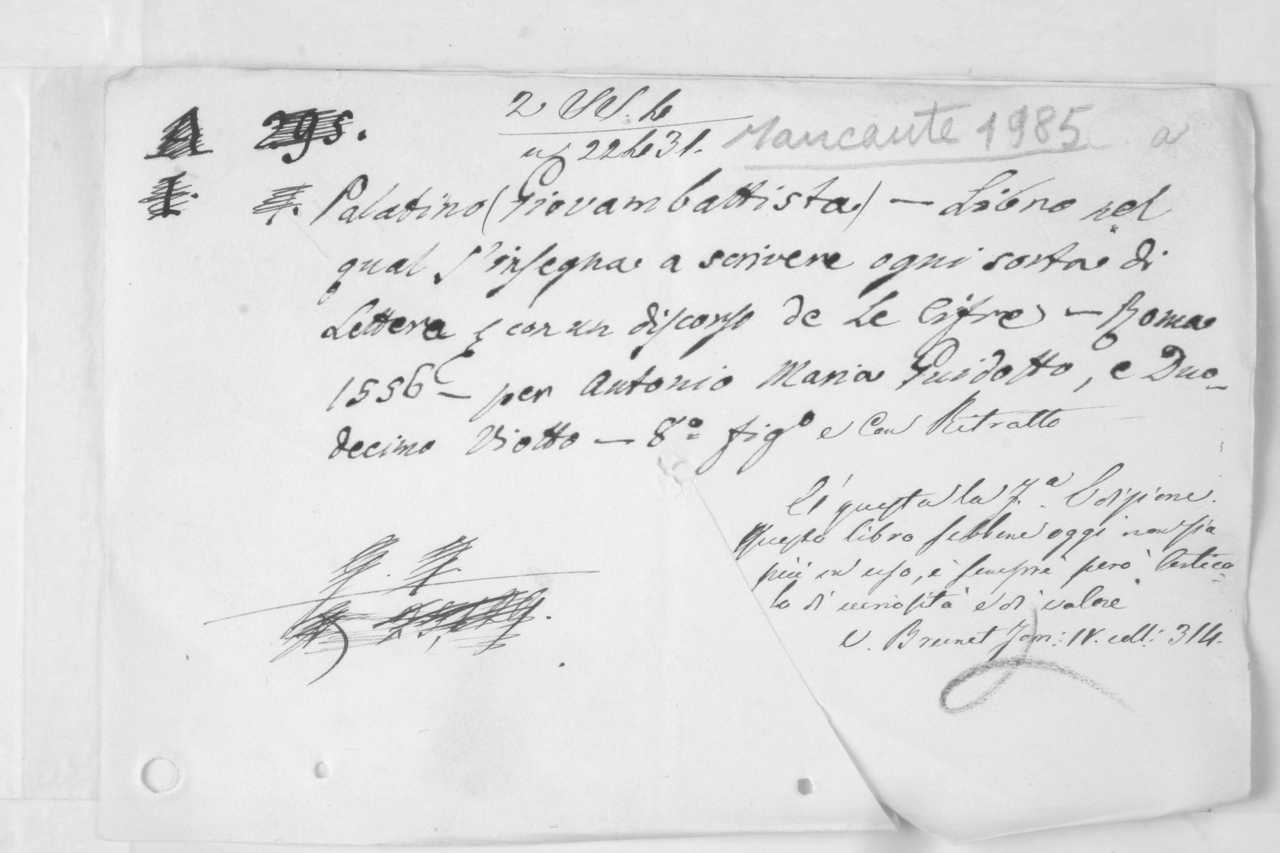 A 295.
2 W. h
n/ 22h31.
Mancante 1985 a
I.
Palatino (Giovambattista) — Libro nel
qual s'insegna a scrivere ogni sorta di
Lettera, e con un discorso de Le Cifre — Roma
1556 — per Antonio Maria Guidotto, e Duo-
decimo Viotto — 8º figº e con Ritratto
E' questa la 7.ª Edizione.
Questo libro sebbene oggi non sia
più in uso, è sempre però Artico-
lo di curiosità e di valore
v. Brunet Tom: IV. coll: 314.